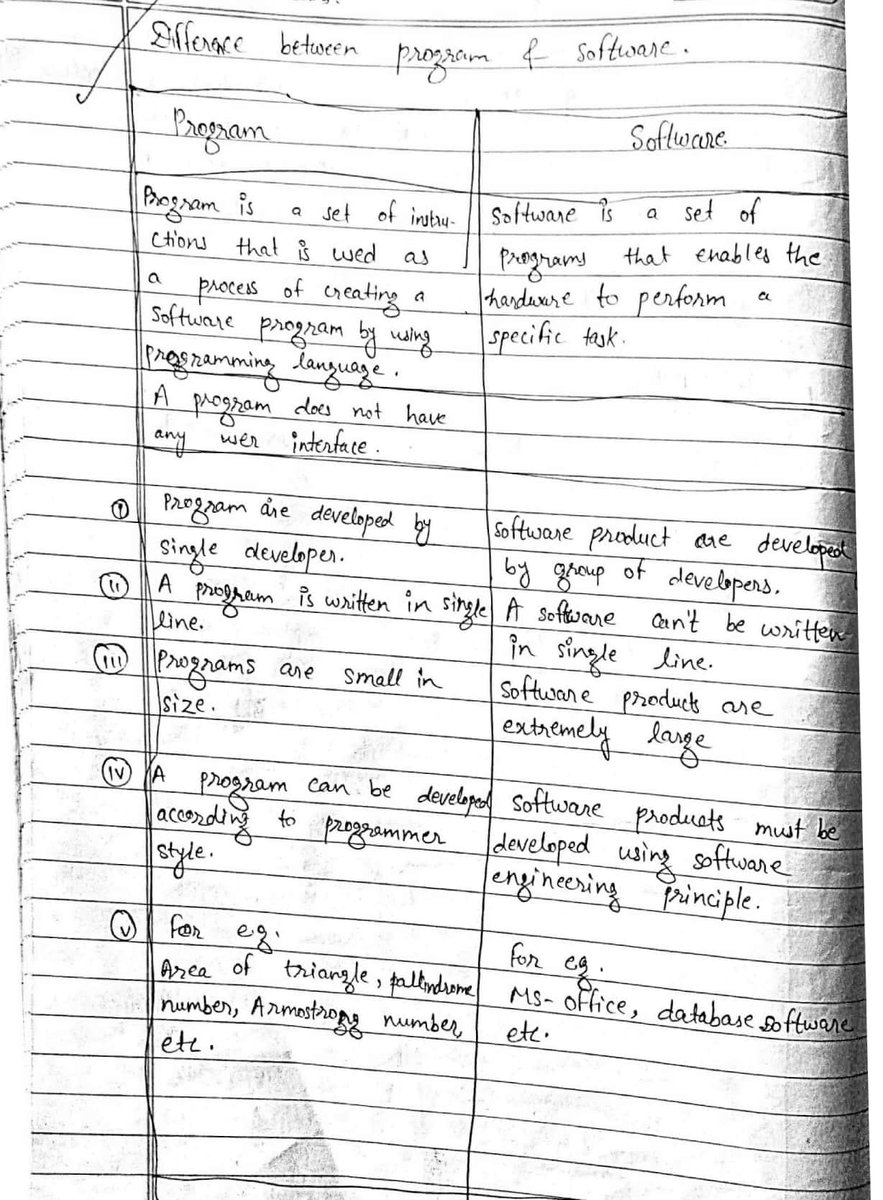 Difference between program & software.
Program
Software.
Program is a set of instru-
ctions that is used as
a process of creating a
software program by using
programming language.
Software is a set of
programs that enables the
hardware to perform a
specific task.
A program does not have
any user interface.
(i) Program are developed by
single developer.
Software product are developed
by group of developers.
(ii) A program is written in single
line.
A software can't be written
in single line.
(iii) Programs are small in
size.
Software products are
extremely large
(iv) A program can be developed
according to programmer
style.
Software products must be
developed using software
engineering principle.
(v) For eg.
Area of triangle, pallindrome
number, Armostrong number,
etc.
For eg.
MS-office, database software
etc.